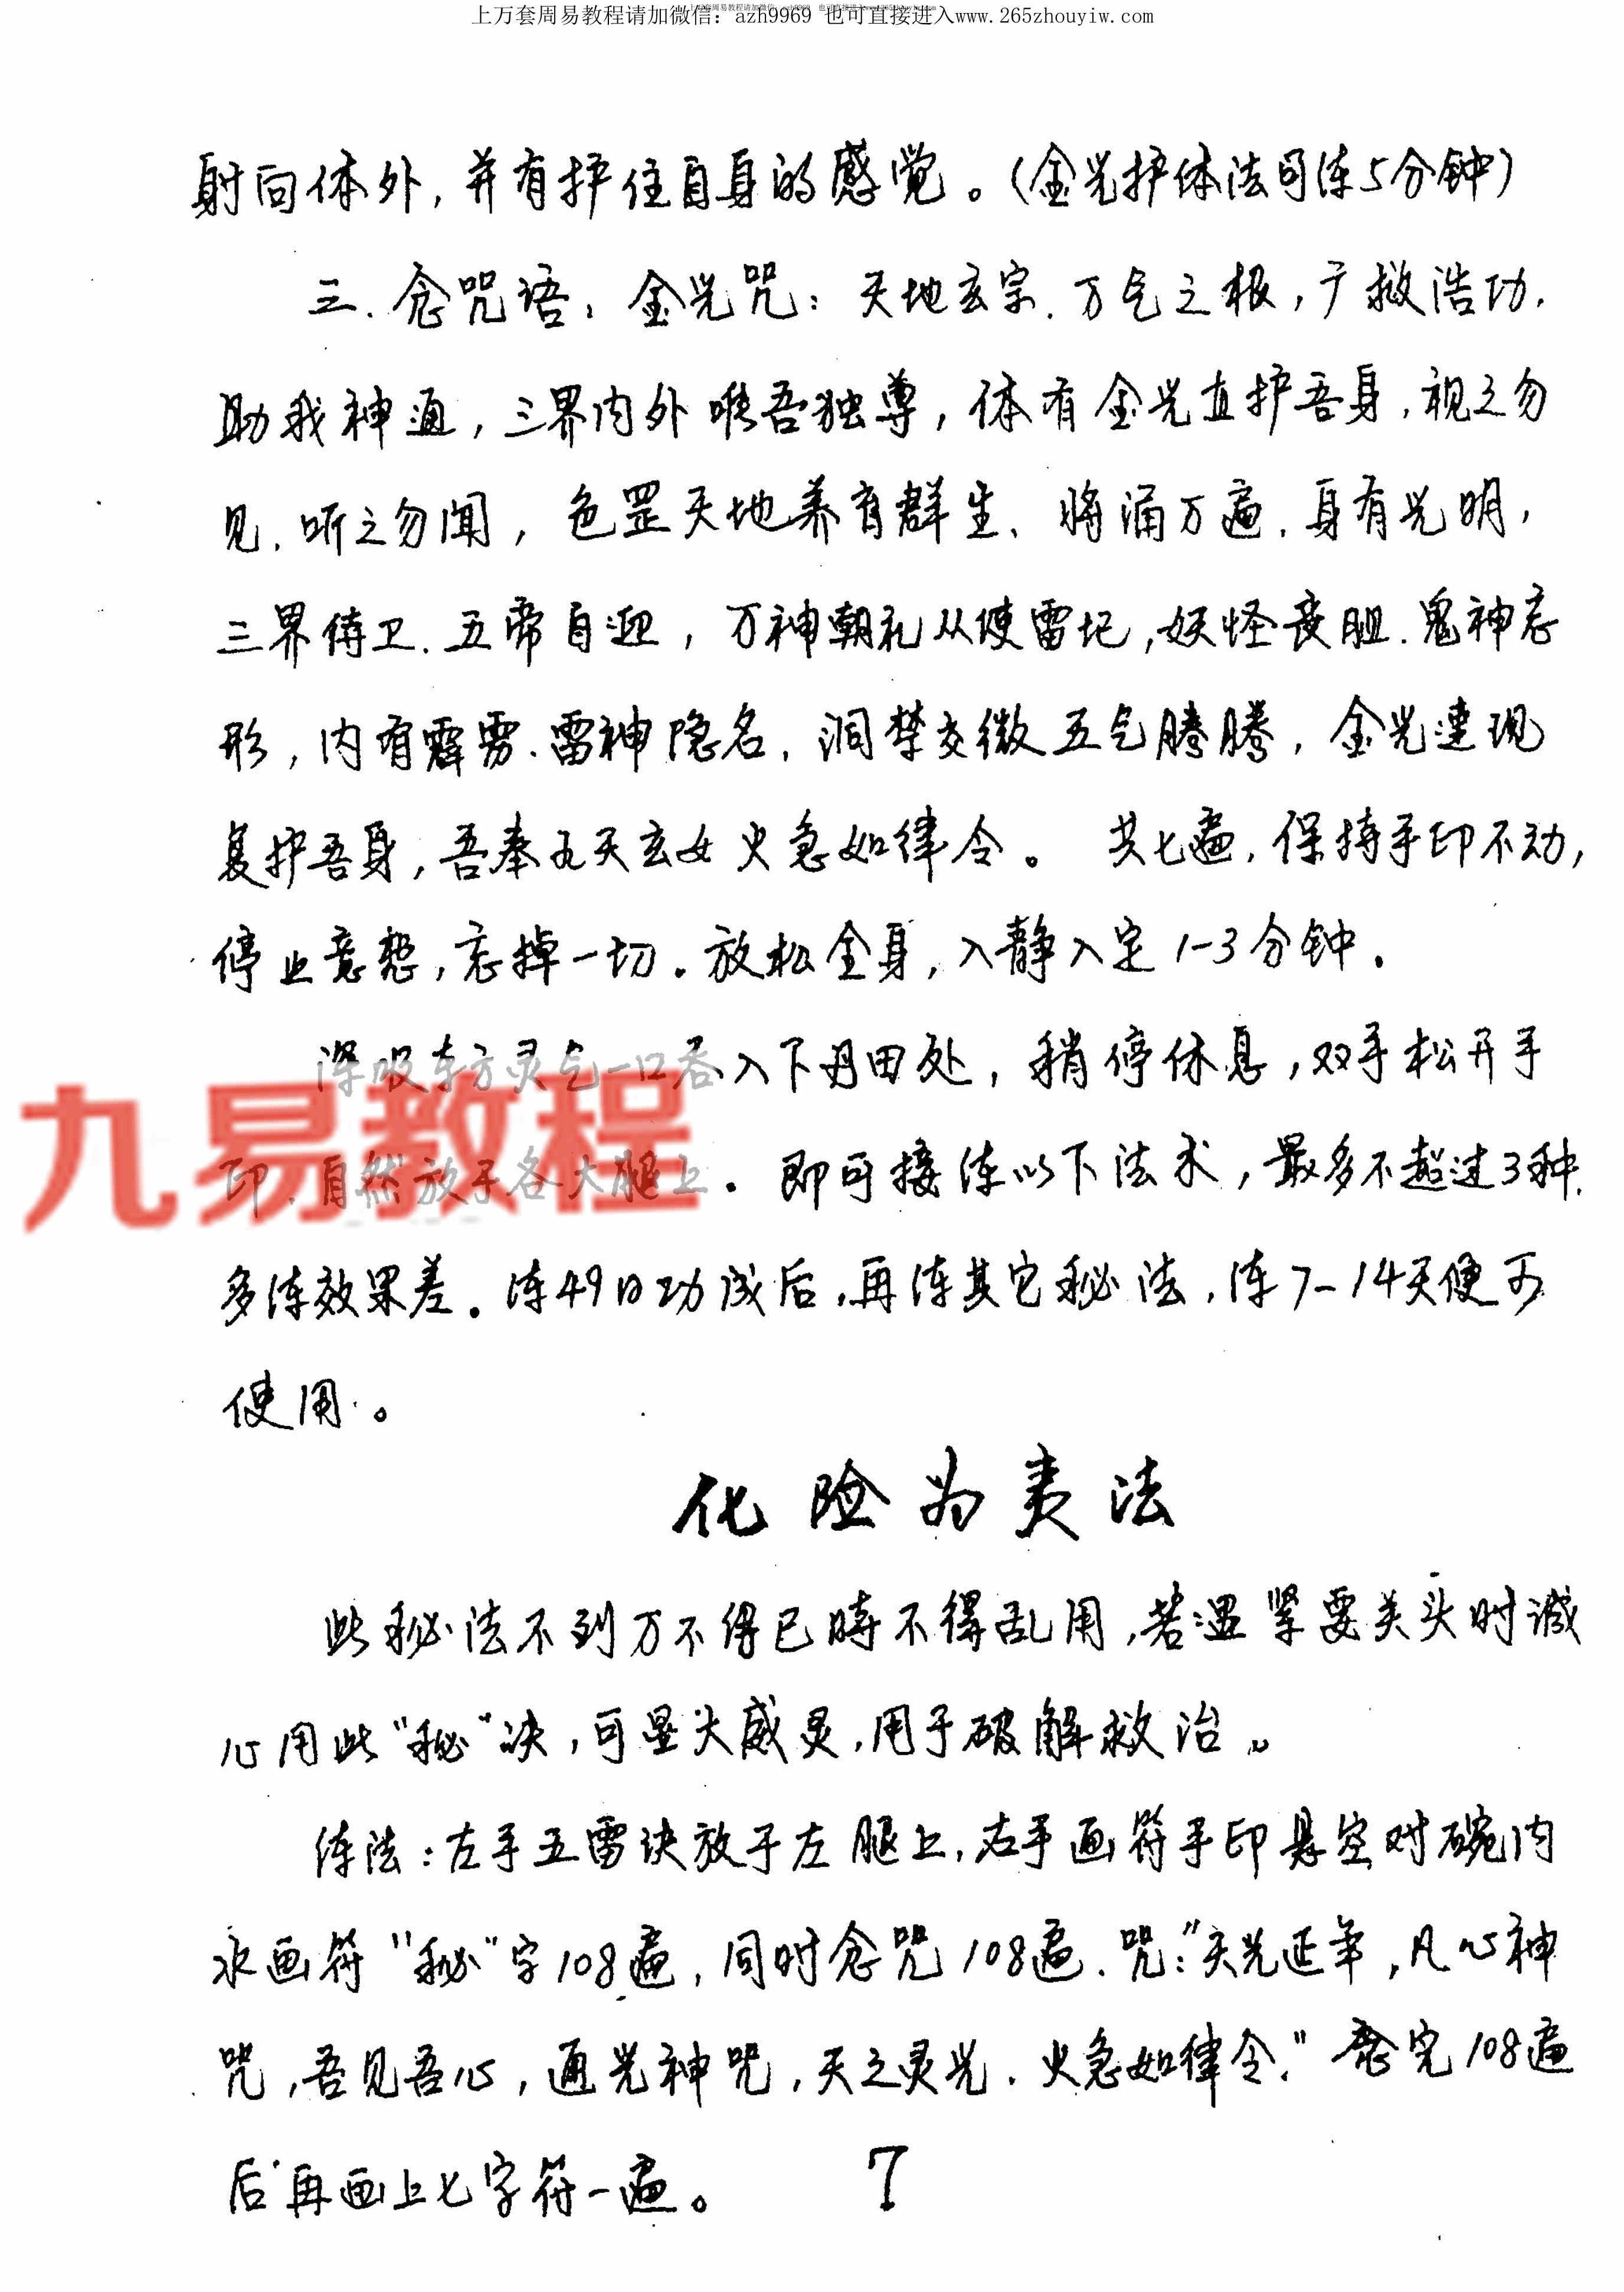 上万套周易教程请加微信：azh9969 也可直接进入www.265zhouyiw.com
射向体外，并有护住自身的感觉。（金光护体法可练5分钟）
三．念咒语：金光咒：天地玄宗．万气之根，广救浩功．
助我神通，三界内外唯吾独尊，体有金光直护吾身，视之勿
见．听之勿闻，色罡天地养育群生、将涌万遍．身有光明，
三界侍卫．五帝自迎，万神朝礼从使雷圮，妖怪丧胆．鬼神忘
形，内有霹雳．雷神隐名．洞禁交微五气腾腾，金光速现
复护吾身，吾奉九天玄女火急如律令。 共七遍，保持手印不动，
停止意想，忘掉一切。放松全身，入静入定1-3分钟．
深吸东方灵气一口吞入下丹田处，稍停休息，双手松开手
印．自然放于各大腿上．即可接练以下法术，最多不超过3种．
多练效果差。练49日功成后，再练其它秘法，练7-14天便可
使用。
化险为夷法
此秘法不到万不得已時不得乱用，若遇紧要关头时诚
心用此"秘"决，可显大威灵，用于破解救治。
练法：左手五雷诀放于左腿上，右手画符手印悬空对碗内
水画符"秘"字108遍，同时念咒108遍．咒："天光延年，凡心神
咒，吾见吾心，通光神咒，天之灵光．火急如律令．"念完108遍
后再画上七字符一遍。
7
九易教程